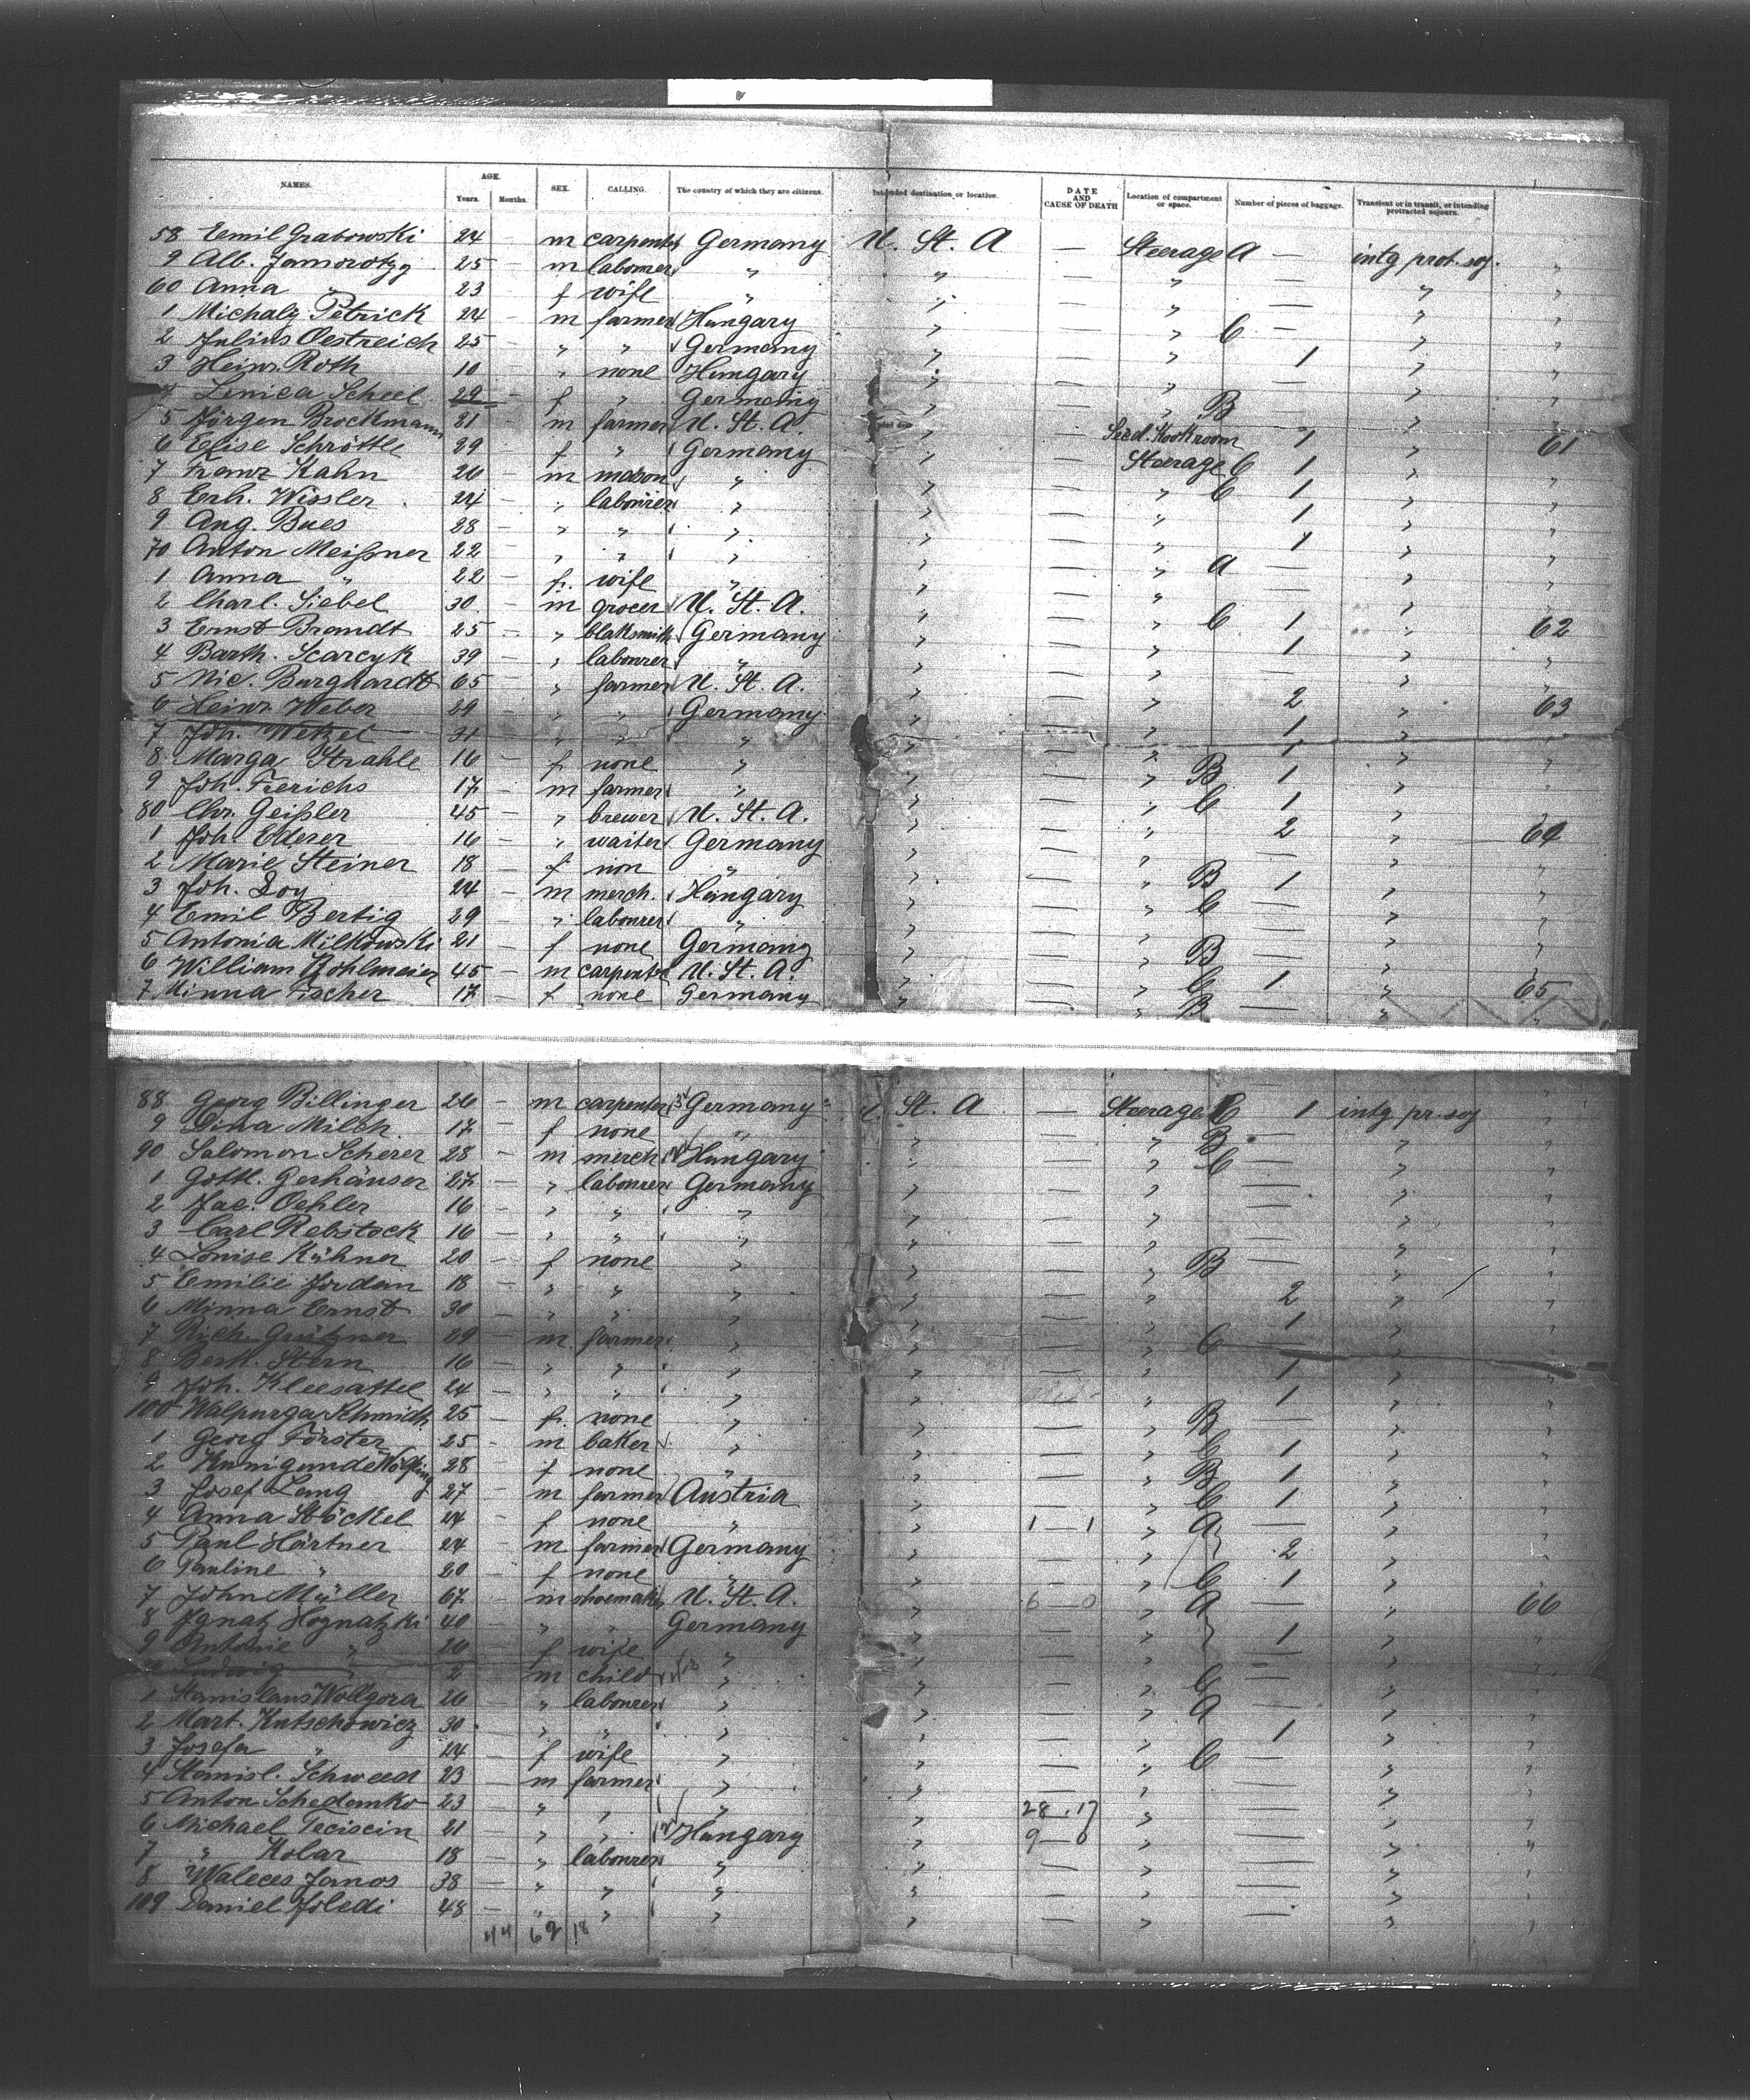 NAMES. AGE. Years. Months. SEX. CALLING. The country of which they are citizens. Intended destination or location. DATE AND CAUSE OF DEATH Location of compartment or space. Number of pieces of baggage. Transient or in transit, or intending protracted sojourn.
58 Emil Grabowski 24 — m carpenter Germany U. St. A — Steerage A — intg prot. soj.
9 Alb. 25 — m labourer " " — " — " "
60 Anna " 23 — f wife " " — " — " "
1 Michaly Petrick 24 — m farmer Hungary " — " C — " "
2 Julius Oestreich 25 — " " Germany " — " 1 " "
3 Heinr. Roth 10 — " none Hungary " — " — " "
4 Lenica Scheel 29 — f " Germany " — " B — " "
5 Jörgen Brockmann 81 — m farmer U. St. A. " — 1 " 61
6 Elise Schröttle 29 — f " Germany " — Steerage C 1 " "
7 Franz Kahn 26 — m mason " " — " C 1 " "
8 Erh. Wissler 24 — " labourer " " — " 1 " "
9 Aug. Bues 28 — " " " " — " 1 " "
70 Anton Meißner 22 — " " " " — " A — " "
1 Anna " 22 — f. wife " " — " — " "
2 Charl. Siebel 30 — m grocer U. St. A. " — " C 1 " 62
3 Ernst Brandt 25 — " blaksmith Germany " — " 1 " "
4 Barth. Scarcyk 39 — " labourer " " — " — " "
5 Nic. Burghardt 65 — " farmer U. St. A. " — " 2 " 63
6 Heinr. Weber 29 — " " Germany " — " 1 " "
7 Joh. Wetzel 31 " " " " — " 1 " "
8 Marga Strahle 16 — f none " " — " B 1 " "
9 Joh. Frerichs 17 — m farmer " " — " C 1 " "
80 Chr. Geißler 45 — " brewer U. St. A. " — " 2 " 64
1 Joh. Ederer 16 — " waiter Germany " — " — " "
2 Marie Steiner 18 — f non " " — " B 1 " "
3 Joh. Doy 24 — m merch. Hungary " — " C — " "
4 Emil Bertig 29 — " labourer " " — " — " "
5 Antonia Milkowski 21 — f none Germany " — " B — " "
6 William Pohlmeier 45 — m carpenter U. St. A. " — " C 1 " 65
7 Minna Fischer 17 — f none Germany " — " B — " "
88 Georg Billinger 26 — m carpenter Germany U. St. A — Steerage C 1 intg pr. soj
9 Dina Milch 17 — f none " " — " B — " "
90 Salomon Scherer 28 — m merch Hungary " — " C — " "
1 Gottl. Gerhäuser 27 — " labourer Germany " — " — " "
2 Jac. Oehler 16 — " " " " — " — " "
3 Carl Rebstock 16 — " " " " — " — " "
4 Louise Kühner 20 — f none " " — " B — " "
5 Emilie Jordan 18 — " " " " — " 2 " "
6 Minna Ernst 30 — " " " " — " 1 " "
7 Rich. Grützner 29 — m farmer " " — " C — " "
8 Berth. Stern 16 — " " " " — " 1 " "
9 Joh. Kleesattel 24 — " " " " " 1 " "
100 Walpurga Schmidt 25 — f. none " " — " B — " "
1 Georg Förster 25 — m baker " " — " C 1 " "
2 Kunigunde Wölfling 28 — f none " " — " B 1 " "
3 Josef Lang 27 — m farmer Austria " — " C 1 " "
4 Anna Stöckel 24 — f none " " 1—1 " A — " "
5 Paul Härtner 24 — m farmer Germany " — " 2 " "
6 Pauline " 20 — f none " " — " C 1 " "
7 John Müller 67 — m shoemaker U. St. A. " 6—0 " A — " 66
8 Ignatz Hognatzki 40 — " " Germany " — " 1 " "
9 Antonie " 20 — f wife " " — " — " "
Ludwig " 2 m child " " — " C — " "
1 Stanislaus Wollgora 26 — " labourer " " — " A — " "
2 Mart. Kutschowicz 30 — " " " " — " 1 " "
3 Josefa " 24 — f wife " " — " C — " "
4 Stanisl. Schweed 23 — m farmer " " — " — " "
5 Anton Schedemko 23 — " " " " 28.17 " — " "
6 Michael Teciscin 21 — " " Hungary " 9—0 " — " "
7 " Kolar 18 — " labourer " " — " — " "
8 Waleces Janos 38 — " " " " — " — " "
109 Daniel Joledi 48 — " " " " — " — " "
44 62 18